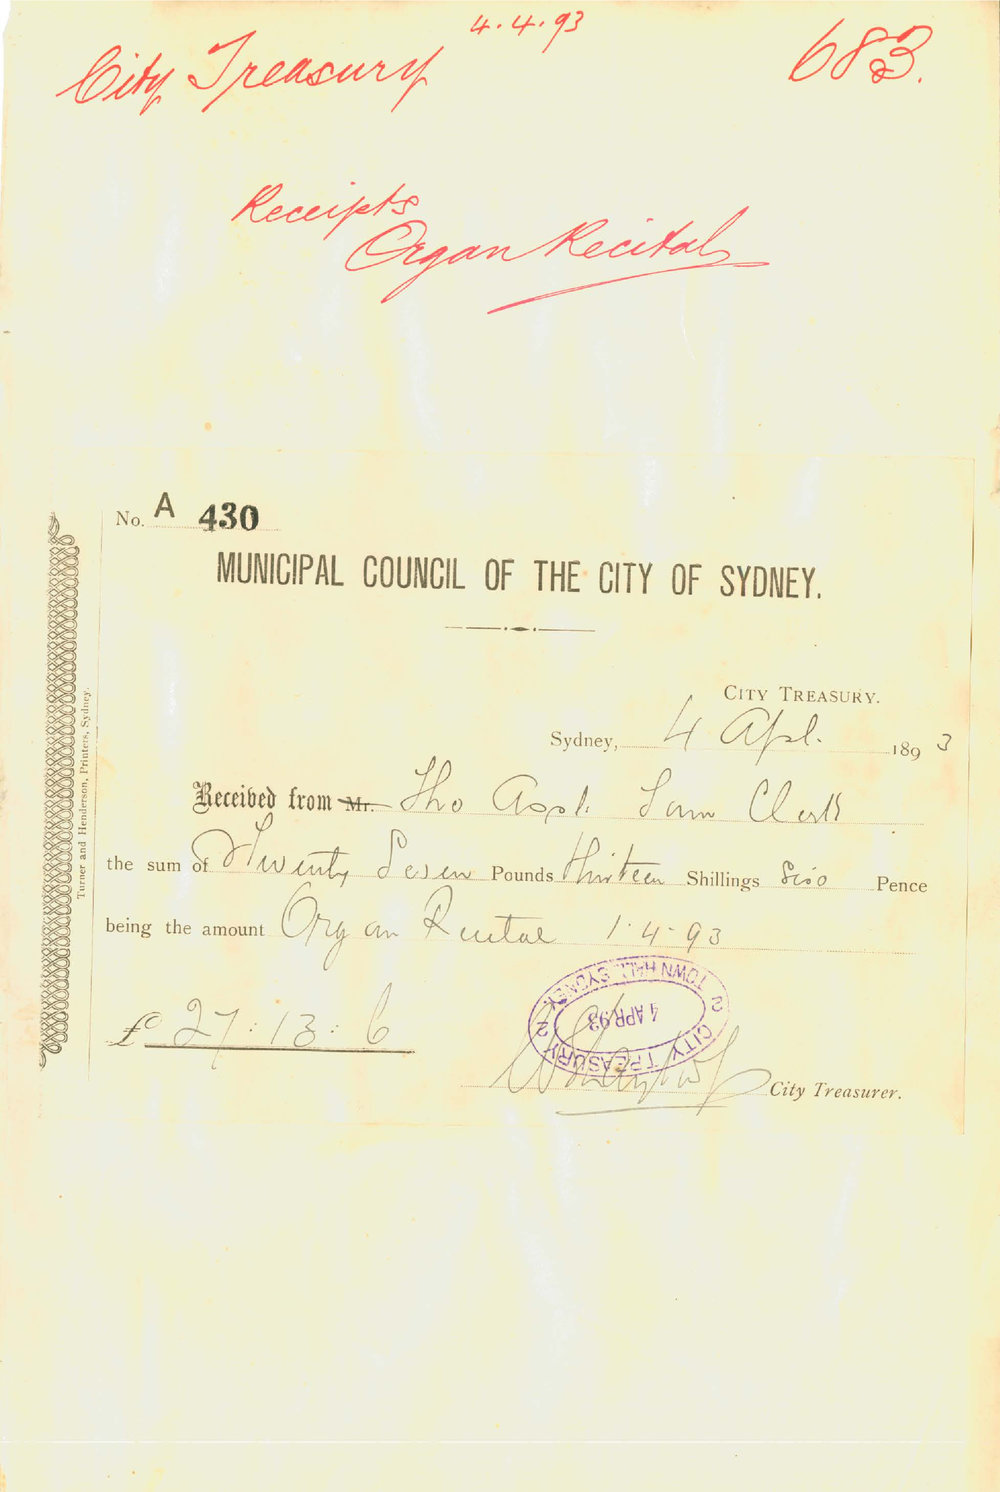 4.4.93
City Treasury 683.
Receipts
Organ Recital
No. A 430
MUNICIPAL COUNCIL OF THE CITY OF SYDNEY.
CITY TREASURY.
Sydney, 4 Apl. 1893
Received from Mr. The Asst. Town Clerk
the sum of Twenty Seven Pounds Thirteen Shillings Six Pence
being the amount Organ Recital 1.4.93
£ 27:13:6
City Treasurer.
CITY TREASURY
4 APR 93
2 TOWN HALL, SYDNEY. 2
Turner and Henderson, Printers, Sydney.